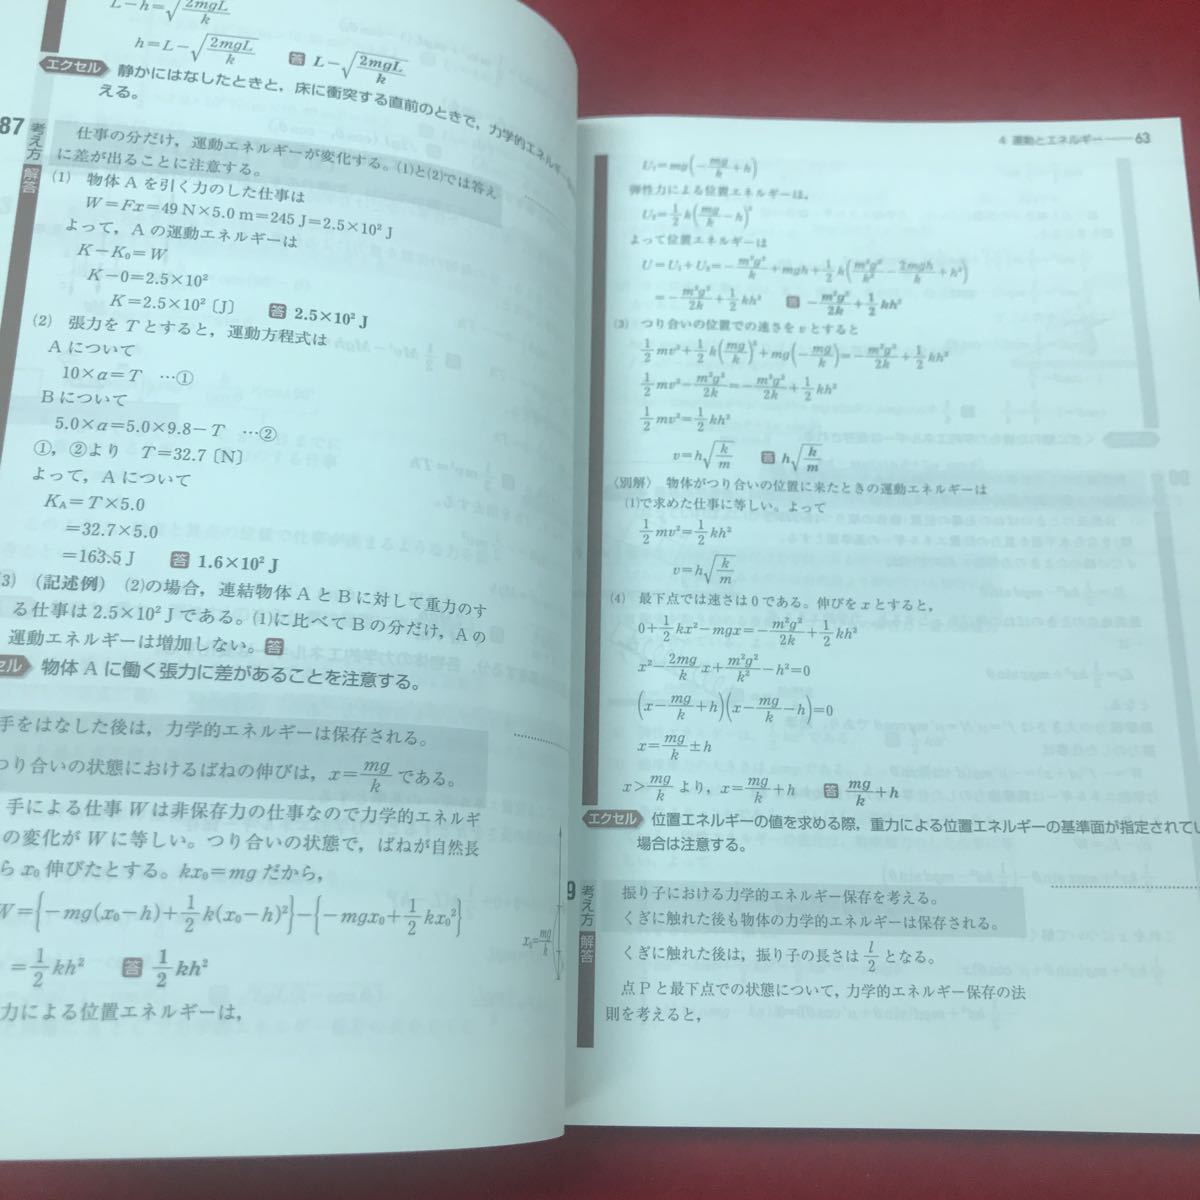 L−h=√(2mgL/k)
h=L−√(2mgL/k) 答 L−√(2mgL/k)
エクセル 静かにはなしたときと，床に衝突する直前のときで，力学的エネルギー
える。
87 考え方 仕事の分だけ，運動エネルギーが変化する。(1)と(2)では答え
に差が出ることに注意する。
解答 (1) 物体 A を引く力のした仕事は
W=Fx=49 N×5.0 m=245 J=2.5×10² J
よって，A の運動エネルギーは
K−K₀=W
K−0=2.5×10²
K=2.5×10²〔J〕 答 2.5×10² J
(2) 張力を T とすると，運動方程式は
A について
10×a=T …①
B について
5.0×a=5.0×9.8−T …②
①，②より T=32.7〔N〕
よって，A について
K_A=T×5.0
=32.7×5.0
=163.5 J 答 1.6×10² J
3) (記述例) (2)の場合，連結物体 A と B に対して重力のす
る仕事は 2.5×10² J である。(1)に比べて B の分だけ，A の
運動エネルギーは増加しない。答
セル 物体 A に働く張力に差があることを注意する。
手をはなした後は，力学的エネルギーは保存される。
つり合いの状態におけるばねの伸びは，x=mg/k である。
手による仕事 W は非保存力の仕事なので力学的エネルギ
の変化が W に等しい。つり合いの状態で，ばねが自然長
ら x₀ 伸びたとする。kx₀=mg だから，
W={−mg(x₀−h)+1/2 k(x₀−h)²}−{−mgx₀+1/2 kx₀²}
=1/2 kh² 答 1/2 kh²
x₀=mg/k
力による位置エネルギーは，
4 運動とエネルギー──63
U₁=mg(−mg/k+h)
弾性力による位置エネルギーは，
U₂=1/2 k(mg/k−h)²
よって位置エネルギーは
U=U₁+U₂=−m²g²/k+mgh+1/2 k(m²g²/k²−2mgh/k+h²)
=−m²g²/2k+1/2 kh² 答 −m²g²/2k+1/2 kh²
(3) つり合いの位置での速さを v とすると
1/2 mv²+1/2 k(mg/k)²+mg(−mg/k)=−m²g²/2k+1/2 kh²
1/2 mv²−m²g²/2k=−m²g²/2k+1/2 kh²
1/2 mv²=1/2 kh²
v=h√(k/m) 答 h√(k/m)
〈別解〉 物体がつり合いの位置に来たときの運動エネルギーは
(1)で求めた仕事に等しい。よって
1/2 mv²=1/2 kh²
v=h√(k/m)
(4) 最下点では速さは 0 である。伸びを x とすると，
0+1/2 kx²−mgx=−m²g²/2k+1/2 kh²
x²−2mg/k x+m²g²/k²−h²=0
(x−mg/k+h)(x−mg/k−h)=0
x=mg/k±h
x>mg/k より，x=mg/k+h 答 mg/k+h
エクセル 位置エネルギーの値を求める際，重力による位置エネルギーの基準面が指定されてい
場合は注意する。
9 考え方 振り子における力学的エネルギー保存を考える。
くぎに触れた後も物体の力学的エネルギーは保存される。
解答 くぎに触れた後は，振り子の長さは l/2 となる。
点 P と最下点での状態について，力学的エネルギー保存の法
則を考えると，